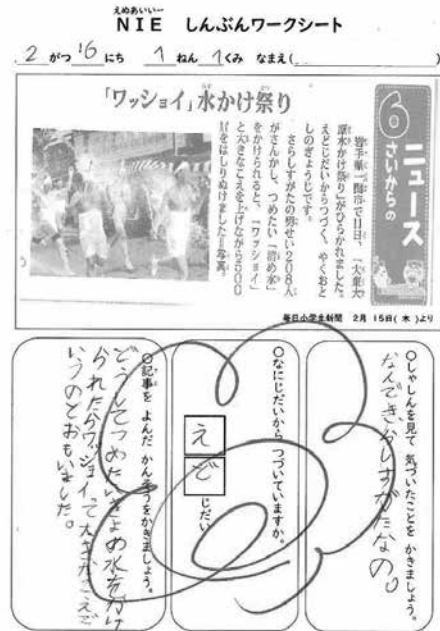 えぬあいいー
NIE しんぶんワークシート
2 がつ 16 にち 1 ねん 1 くみ なまえ( )
6
さいからの
ニュース
「ワッショイ」水かけ祭り
岩手県一関市で11日、「大東大
原水かけ祭り」がひらかれました。
えどじだいからつづく、やくおと
しのぎょうじです。
さらしすがたの男せい208人
がさんかし、つめたい「清め水」
をかけられると、「ワッショイ」
と大きなこえを上げながら500
㍍をはしりぬけました=写真。
毎日小学生新聞 2月 15日(木)より
○しゃしんを見て 気づいたことを かきましょう。
なんで
すがたなの。
○なにじだいから つづいていますか。
えど じだい
○記事を よんだ かんそうをかきましょう。
どうしてつめたいきよめ水をかけ
られたらワッショイって大きなこえで
いうのとおもいました。